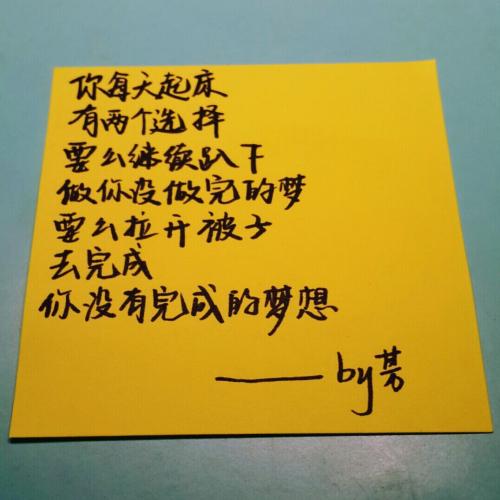 你每天起床
有两个选择
要么继续趴下
做你没做完的梦
要么拉开被子
去完成
你没有完成的梦想
——by芳